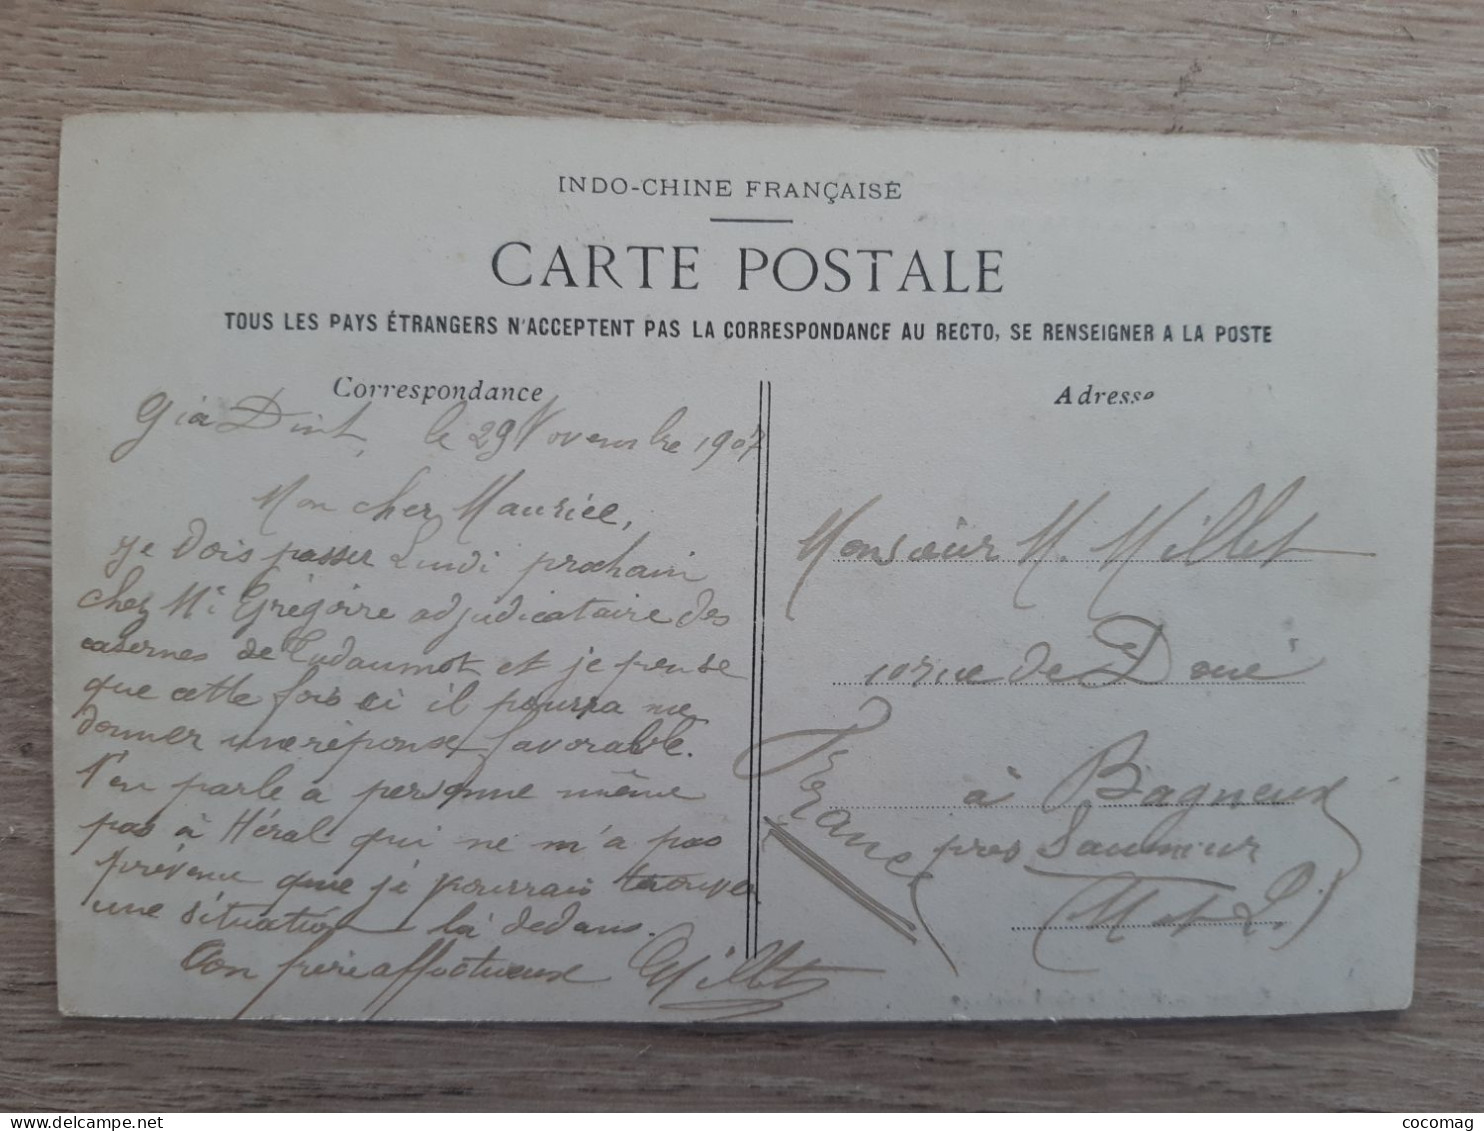 INDO-CHINE FRANÇAISE
CARTE POSTALE
TOUS LES PAYS ÉTRANGERS N'ACCEPTENT PAS LA CORRESPONDANCE AU RECTO, SE RENSEIGNER A LA POSTE
Correspondance
Gia Dinh, le 29 Novembre 1907
Mon cher Maurice,
Je dois passer Lundi prochain
chez Mr Grégoire adjudicataire des
casernes de et je pense
que cette fois ci il pourra me
donner une réponse favorable.
N'en parle à personne même
pas à Héral qui ne m'a pas
prévenu que je pourrais trouver
une situation là dedans.
Ton frère affectueux Millet
Adresse
Monsieur M. Millet
10 rue de Doué
à Bagneux
près Saumur
(M et L.)
France
cocomag